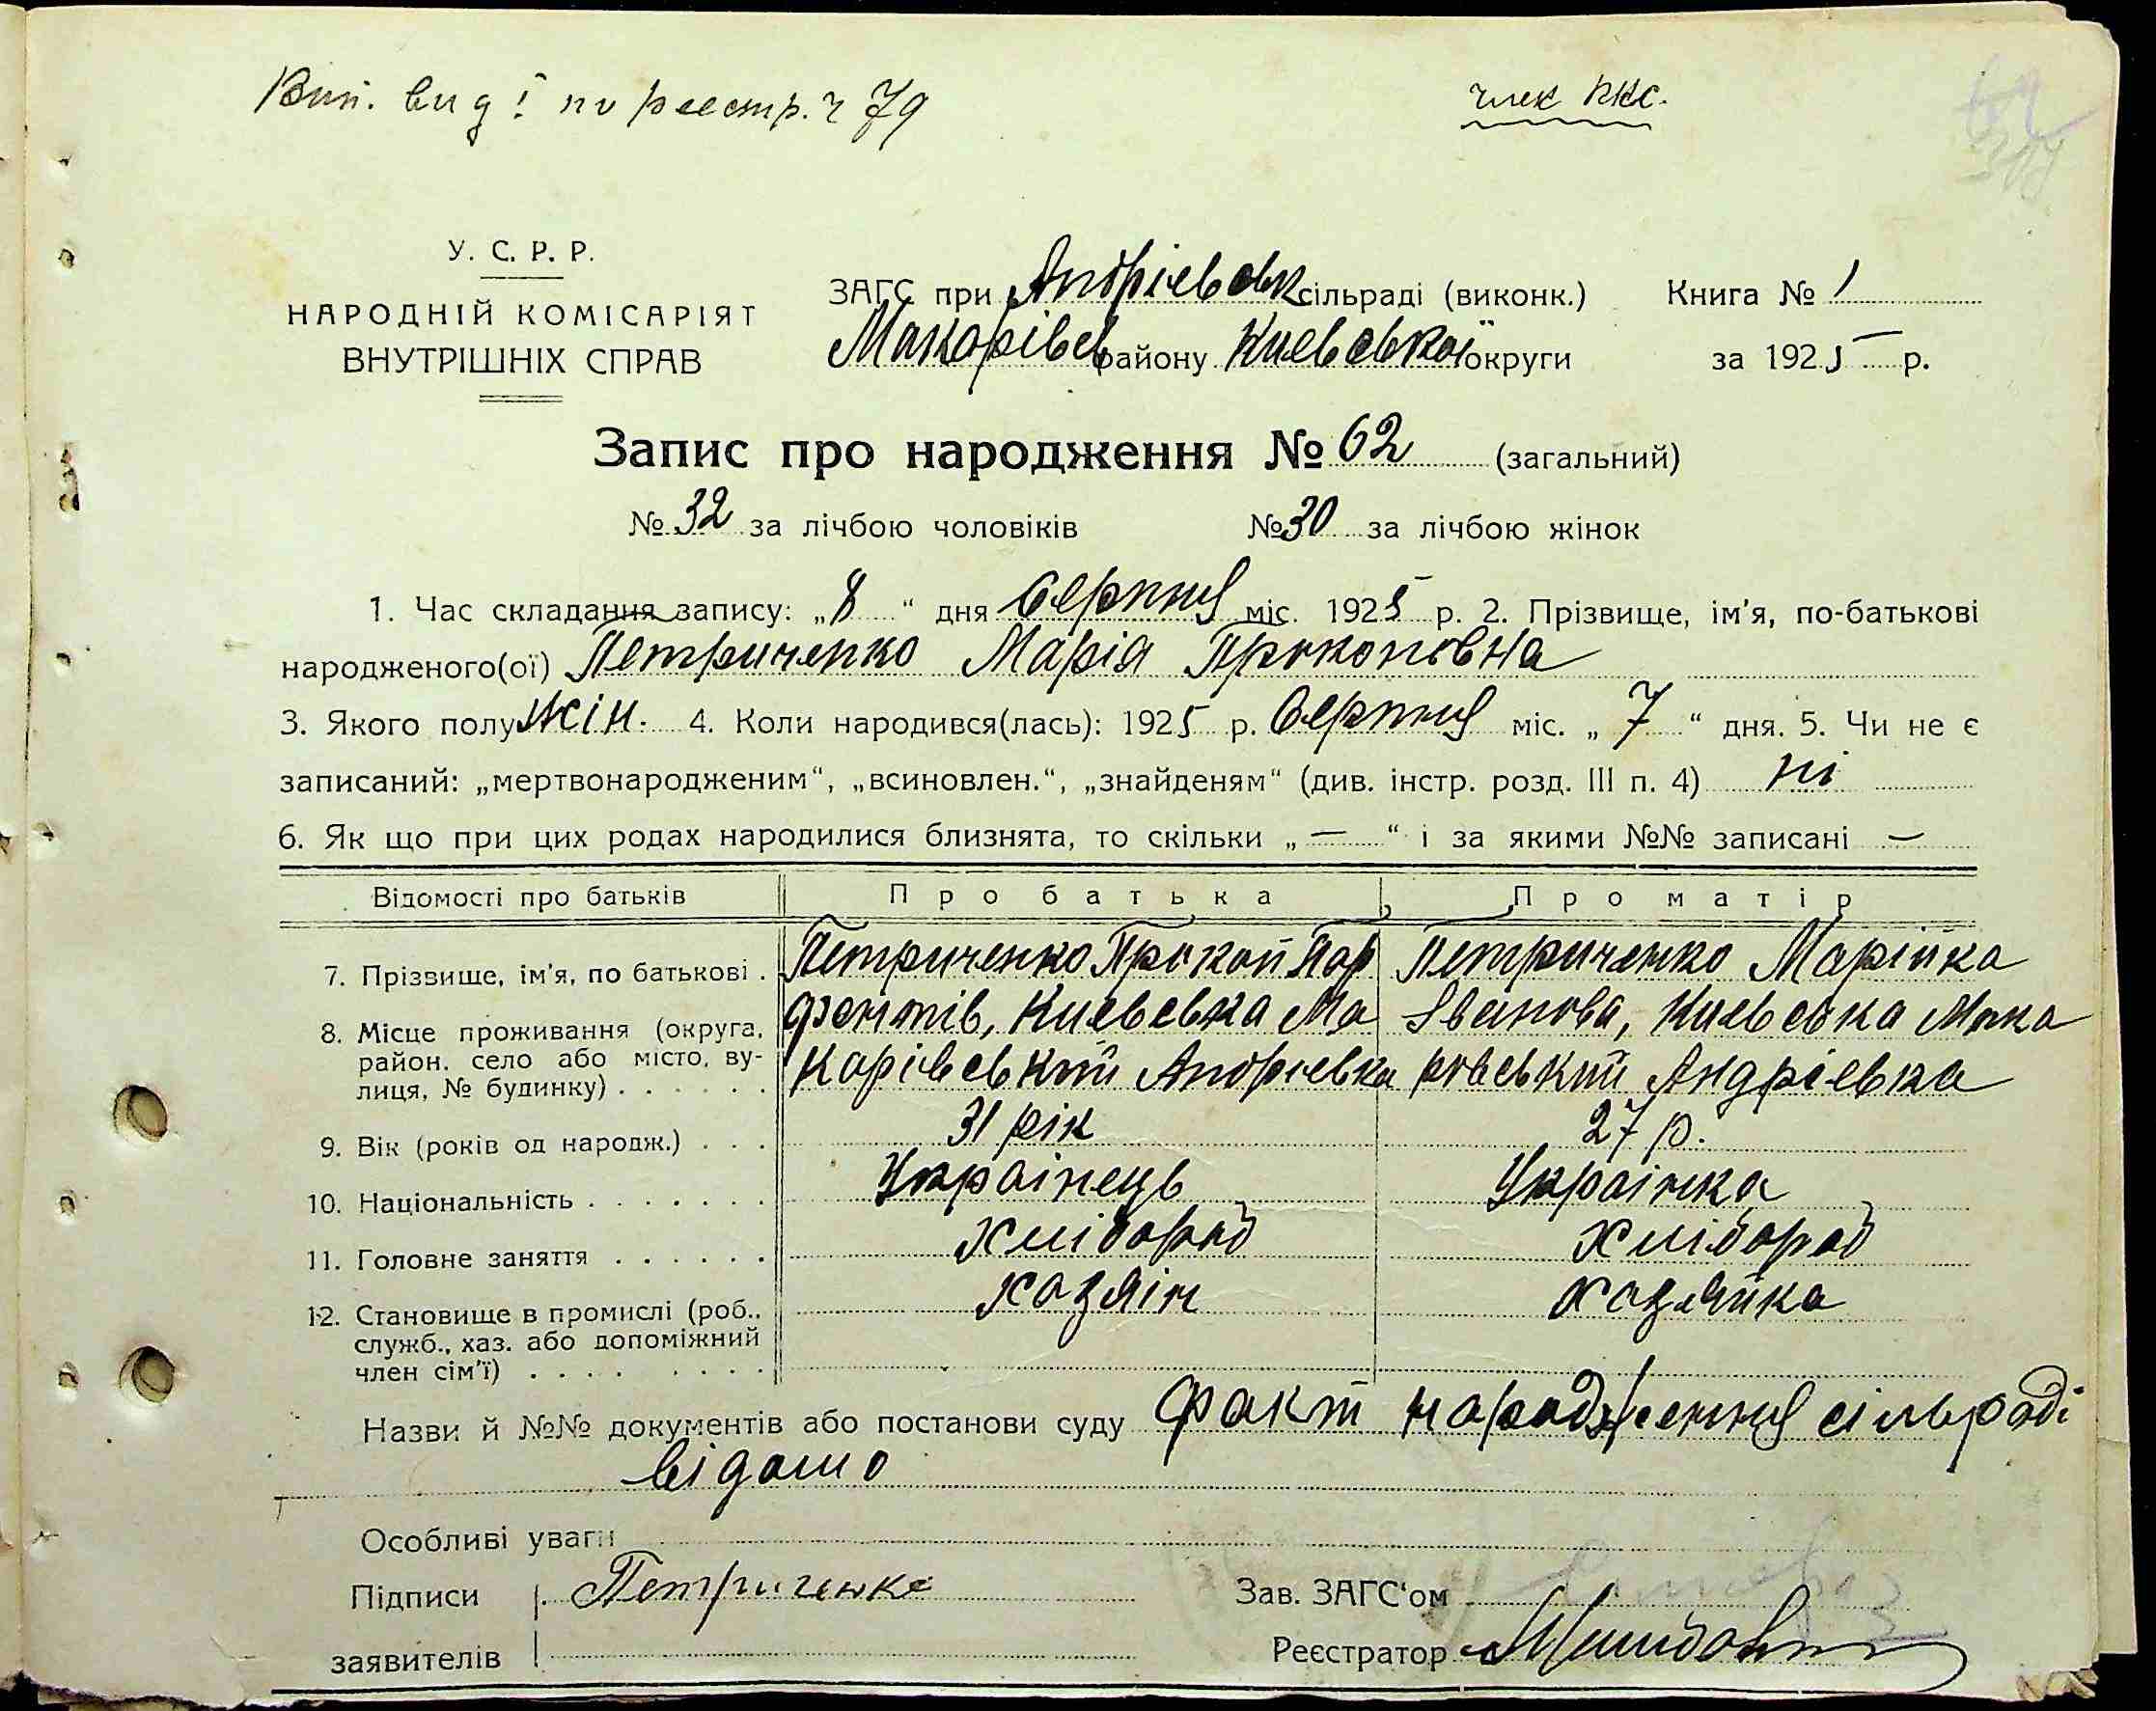 Вип. вид. по реестр. ч 79
член ККС.
62
У. С. Р. Р.
НАРОДНІЙ КОМІСАРІЯТ
ВНУТРІШНІХ СПРАВ
ЗАГС при Андрієвськ сільраді (виконк.) Книга № 1
Макарівськ району Киевської округи за 1925 р.
Запис про народження № 62 (загальний)
№ 32 за лічбою чоловіків № 30 за лічбою жінок
1. Час складання запису: „8“ дня Серпня міс. 1925 р. 2. Прізвище, ім'я, по-батькові
народженого(ої) Петриченко Марія Прокоповна
3. Якого полу жін. 4. Коли народився(лась): 1925 р. Серпня міс. „7“ дня. 5. Чи не є
записаний: „мертвонародженим“, „всиновлен.“, „знайденям“ (див. інстр. розд. III п. 4) ні
6. Як що при цих родах народилися близнята, то скільки „—“ і за якими №№ записані —
Відомості про батьків Про батька Про матір
7. Прізвище, ім'я, по батькові . Петриченко Прокоп Пар Петриченко Марійка
8. Місце проживання (округа, фентів, Киевська Ма Іванова, Киевська Мака
район. село або місто, ву- карівський Андрієвка ровський Андрієвка
лиця, № будинку) . . . . . .
9. Вік (років од народж.) . . . 31 рік 27 р.
10. Національність . . . . . . . Українець Українка
11. Головне заняття . . . . . . Хлібороб Хлібороб
12. Становище в промислі (роб., хазяін хазяйка
служб., хаз. або допоміжний
член сім'ї) . . . . . . . .
Назви й №№ документів або постанови суду факт народження сільраді
відомо
Особливі уваги
Підписи Петриченко Зав. ЗАГС'ом
заявителів Реєстратор